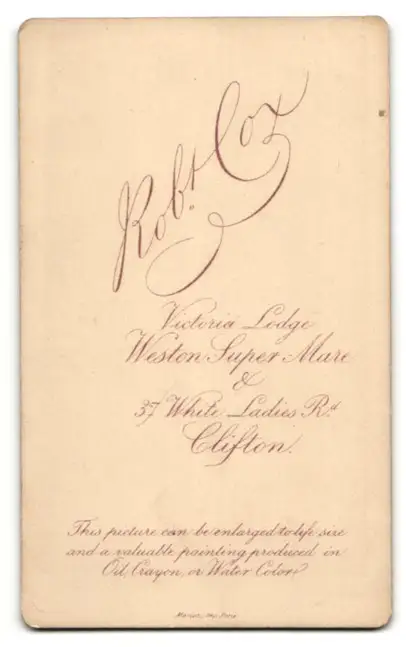 Robt. Cox
Victoria Lodge
Weston Super Mare
&
37 White Ladies Rd
Clifton.
This picture can be enlarged to life size
and a valuable painting produced in
Oil, Crayon, or Water Color
Marion, Imp. Paris